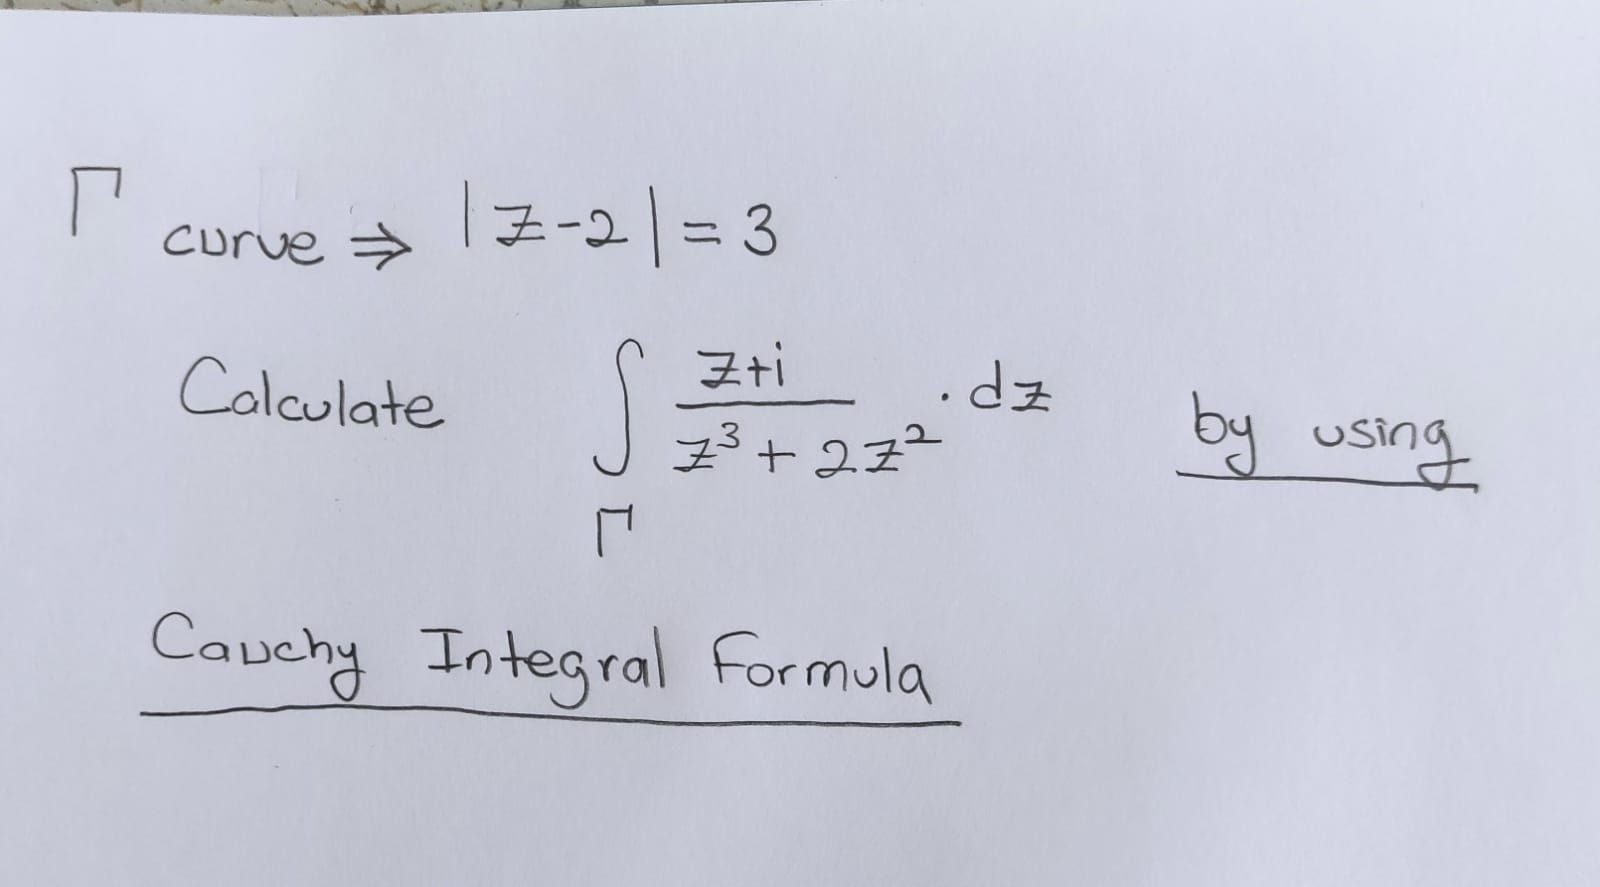 Γ curve ⇒ |z-2| = 3
Calculate ∫_Γ (z+i)/(z³+2z²) · dz by using
Cauchy Integral Formula